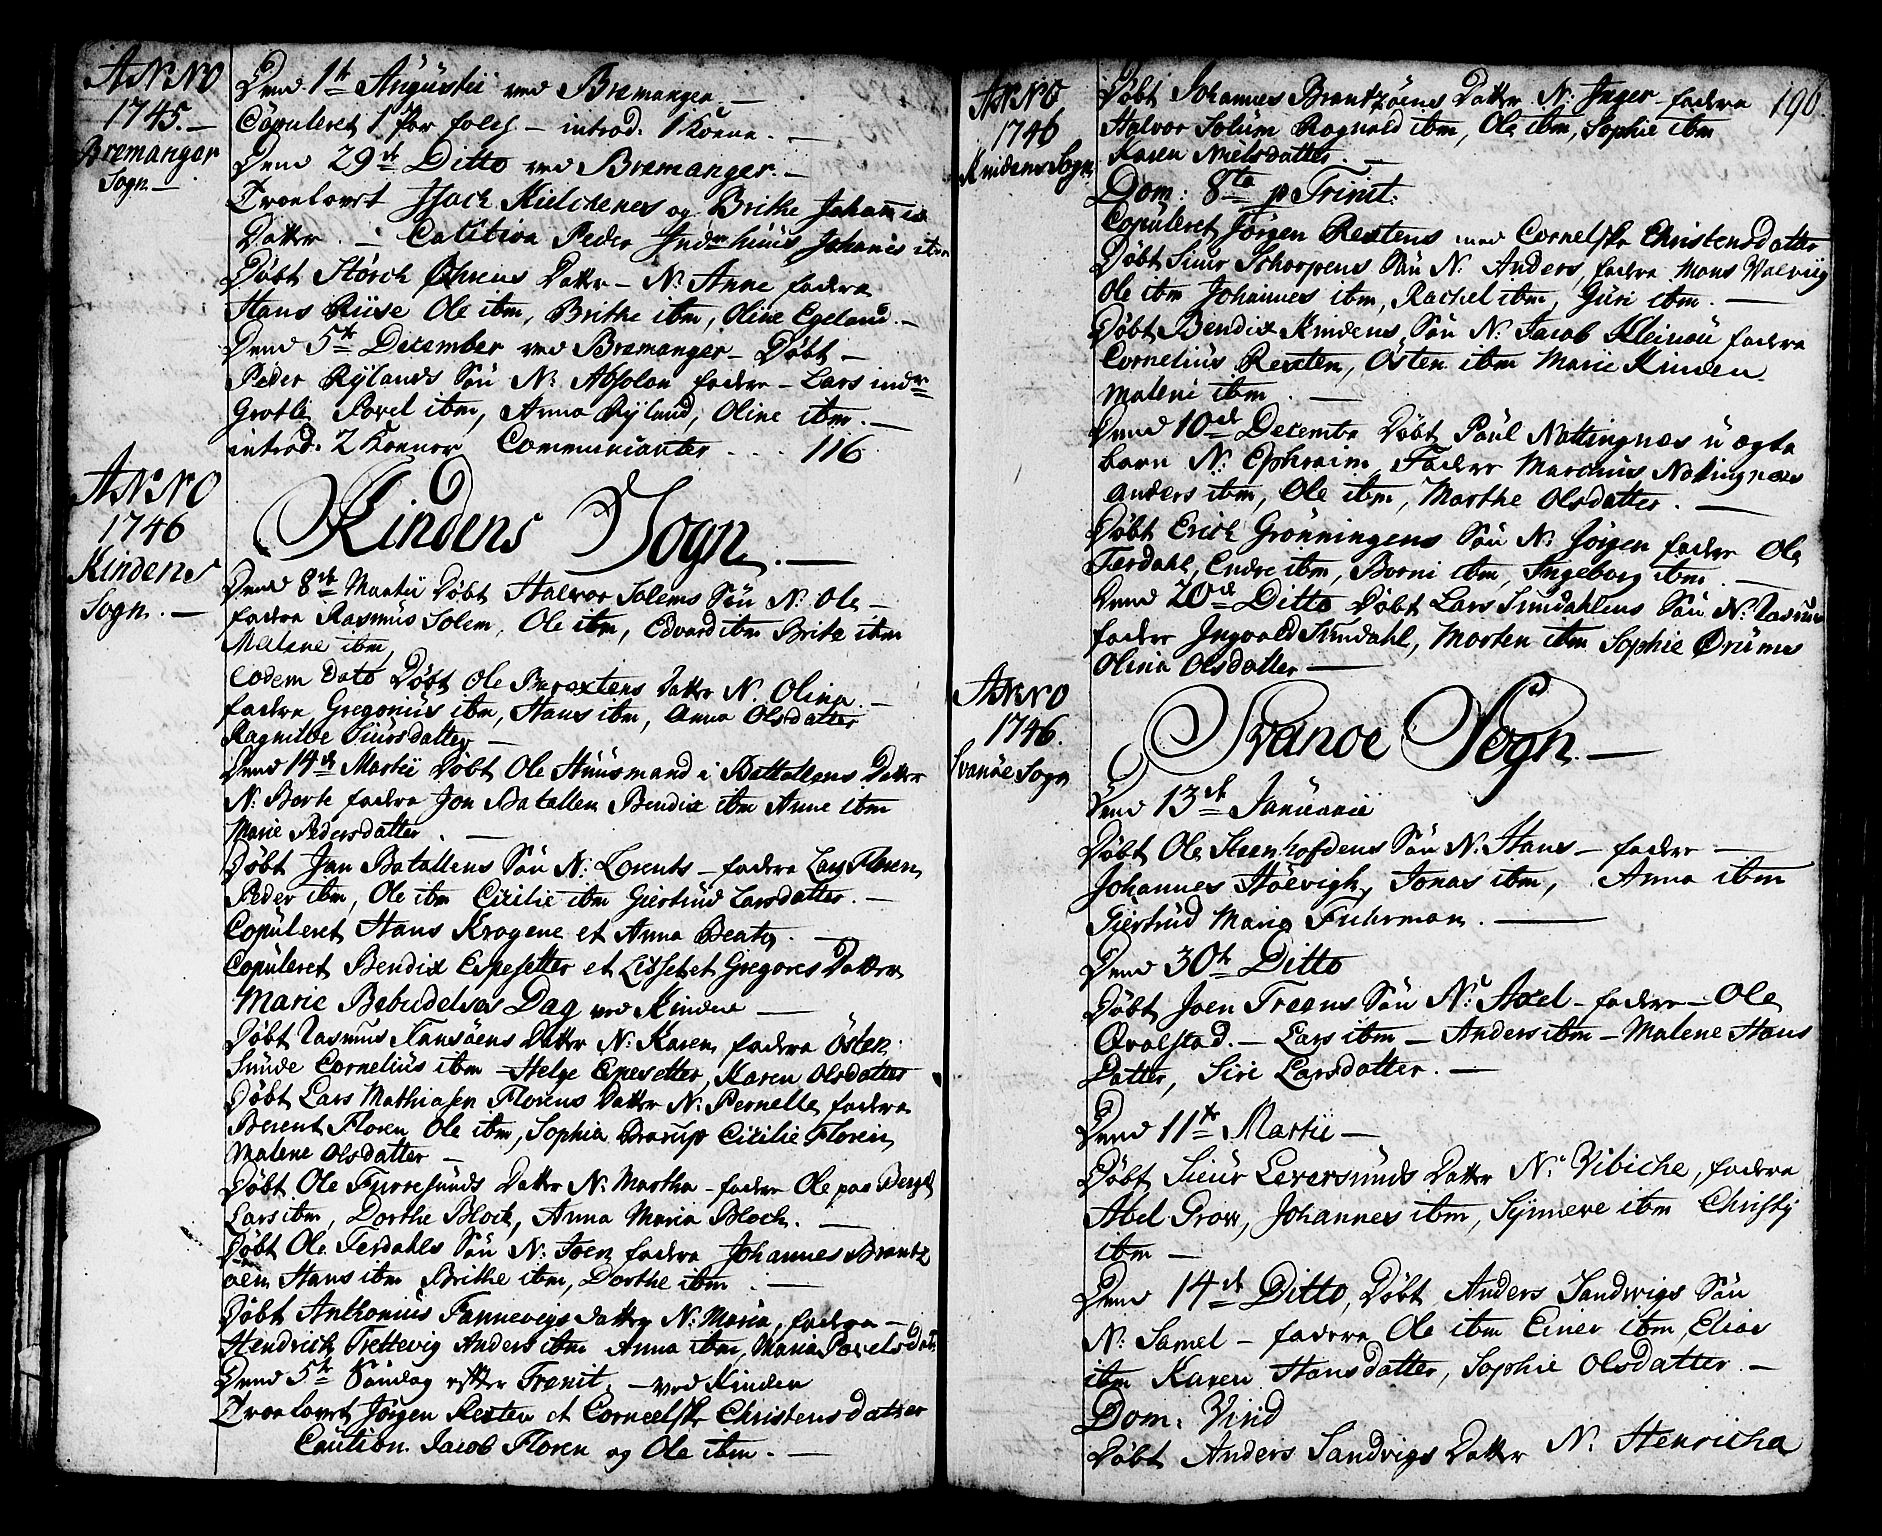 ANNO
1745. —
Bremanger
Sogn —
Dend 1te Augustii ved Bremanger —
Copuleret 1 Par folch — introd. 1 Kone. —
Dend 29de Ditto ved Bremanger —
Trolovet Isach Kielchenes og Brithe Johannis
Datter — Peder Indrehuus Johanis ibm
Døbt Størch Øhrens Datter — N. Anne fadere
Hans Riise Ole ibm, Brithe ibm, Oline Egeland —
Dend 5te December ved Bremanger — Døbt —
Peder Rylands Søn N: Absolon fadere — Lars indre
Grotle Povel ibm, Anna Ryland, Oline ibm. —
introd: 2 Konner Communicanter - - - 116
ANNO
1746
Kindens
Sogn. —
Kindens Sogn. —
Dend 8de Martii Døbt Halvor Solems Søn N: Ole —
fadere Rasmus Solem, Ole ibm, Edvard ibm Brite ibm
Malene ibm,
Eodem Dato Døbt Ole Datter N. Olina. —
fadere Gregorius ibm, Hans ibm, Anna Olsdatter
Ragnilde Siursdatter —
Dend 14de Martii Døbt Ole Huusmand i Battallens Datter
N: Borte fadere Jon Batallen Bendix ibm Anne ibm
Marie Pedersdatter. —
Døbt Jan Batallens Søn N: Lorents — fadere Lars Floren
Peder ibm, Ole ibm Cicilie ibm Giertrud Larsdatter. —
Copuleret Hans Kragene et Anna Beate. —
Copuleret Bendix Espesetter et Lissebet Gregores Datter
Marie Bebudelses Dag ved Kinden —
Døbt Rasmus Fansøens Datter N: Karen fadere Østen
Sunde Cornelius ibm — Helge Epesetter, Karen Olsdatter
Døbt Lars Mathiasen Florens Datter N: Pernelle fadere
Berent Floren Ole ibm, Sophia Cicilie Floren
Malene Olsdatter —
Døbt Ole Furresunds Datter N: Martha — fadere Ole paa
Lars ibm, Dorthe Block, Anna Maria Block. —
Døbt Ole Ferdahls Søn N: Joen fadere Johannes Brantz
øen Hans ibm Brithe ibm, Dorthe ibm. —
Døbt Anthonius Fannevigs datter N: Maria, fadere —
Hendrich Trettevig Anders ibm Anna ibm, Maria Povelsdat
Dend 5te Søndag efter Trenit. — ved Kinden
Trolovet Jørgen Rexten et Cornelske Christensdatter
Caution. Jacob Floren og Ole ibm. —
190.
ANNO
1746
Kindens Sogn
Døbt Johannes Brantzøens Datter N: Inger — fadere
Halvor Solum Ragnald ibm, Ole ibm, Sophie ibm
Karen Nielsdatter. —
Dom: 8ta p Trinit:
Copuleret Jørgen Rextens med Cornelske Christensdatter
Døbt Siur Schorpens Søn N: Anders, fadere Mons Valviig
Ole ibm Johannes ibm, Rachel ibm, Guri ibm. —
Døbt Bendix Kindens Søn N: Jacob Kleinau fadere
Cornelius Rexten, Østen ibm Marie Kinden
Maleni ibm. —
Dend 10de Decembr Døbt Paul Nattingnes u ægte
barn N: Ephraim Fadere Marcnus Notingnes
Anders ibm, Ole ibm, Marthe Olsdatter. —
Døbt Erich Grønningens Søn N: Jørgen fadere Ole
Ferdahl, Endre ibm, Borni ibm, Ingeborg ibm. —
Dend 20de Ditto Døbt Lars Sundahlens Søn N: Rasmus
fadere Ingvald Sundahl, Morten ibm Sophie
Olina Olsdatter —
ANNO
1746.
Svanøe Sogn
Svanoe Sogn. —
Dend 13de Januarii
Døbt Ole Steenhofdens Søn N. Hans — fadere —
Johannes Høevigh, Jonas ibm, Anna ibm
Giertrud Maria Fuhrman. —
Dend 30te Ditto
Døbt Joen Treens Søn N: Axel — fadere — Ole
Qvalstad. — Lars ibm — Anders ibm — Malene Hans
Datter, Siri Larsdatter. —
Dend 11te Martii —
Døbt Siur Leversunds Datter N: Vibiche, fadere
Abel Grow, Johannes ibm, Synneve ibm Christy
ibm —
Dend 14de Ditto, Døbt Anders Sandwigs Søn
N: Samel — fadere Ole ibm Einer ibm, Elias
ibm Karen Hansdatter, Sophie Olsdatter. —
Dom: Vind
Døbt Anders Sandvigs Datter N. Henricha